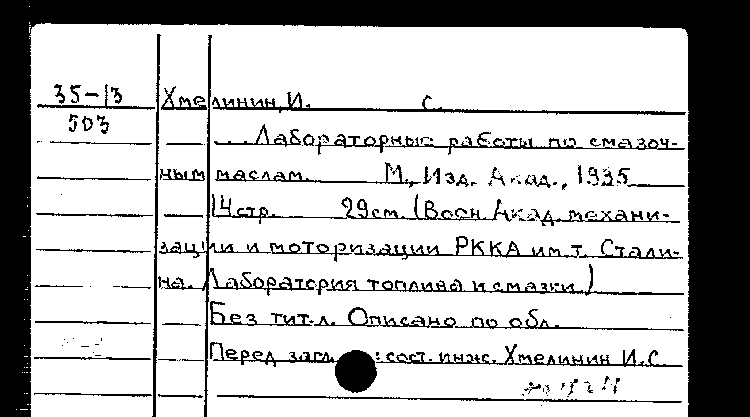 35-13 Хмелинин, И. С.
503 ... Лабораторные работы по смазоч-
ным маслам. М., Изд. Акад., 1935
14 стр. 29 см. (Воен. Акад. механи-
зации и моторизации РККА им. т. Стали-
на. Лаборатория топлива и смазки.)
Без тит. л. Описано по обл.
Перед загл. : сост. инж. Хмелинин И.С.